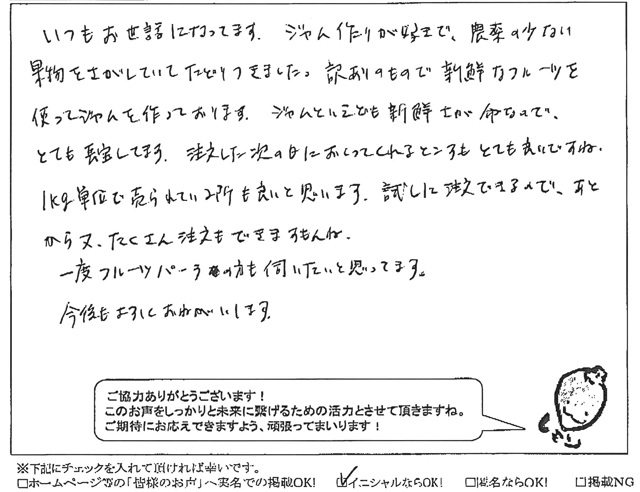 いつもお世話になってます。ジャム作りが好きで、農薬の少ない
果物をさがしていてたどりつきました。訳ありのもので新鮮なフルーツを
使ってジャムを作っております。ジャムといえども新鮮さが命なので、
とても重宝してます。注文した次の日におくってくれるところもとても良いですね。
1kg単位で売られている所も良いと思います。試しに注文できるので、あと
から又、たくさん注文もできますもんね。
一度フルーツパーラーの方も伺いたいと思ってます。
今後もよろしくおねがいします。
ご協力ありがとうございます!
このお声をしっかりと未来に繋げるための活力とさせて頂きますね。
ご期待にお応えできますよう、頑張ってまいります!
※下記にチェックを入れて頂ければ幸いです。
□ホームページ等の「皆様のお声」へ実名での掲載OK! ☑イニシャルならOK! □匿名ならOK! □掲載NG